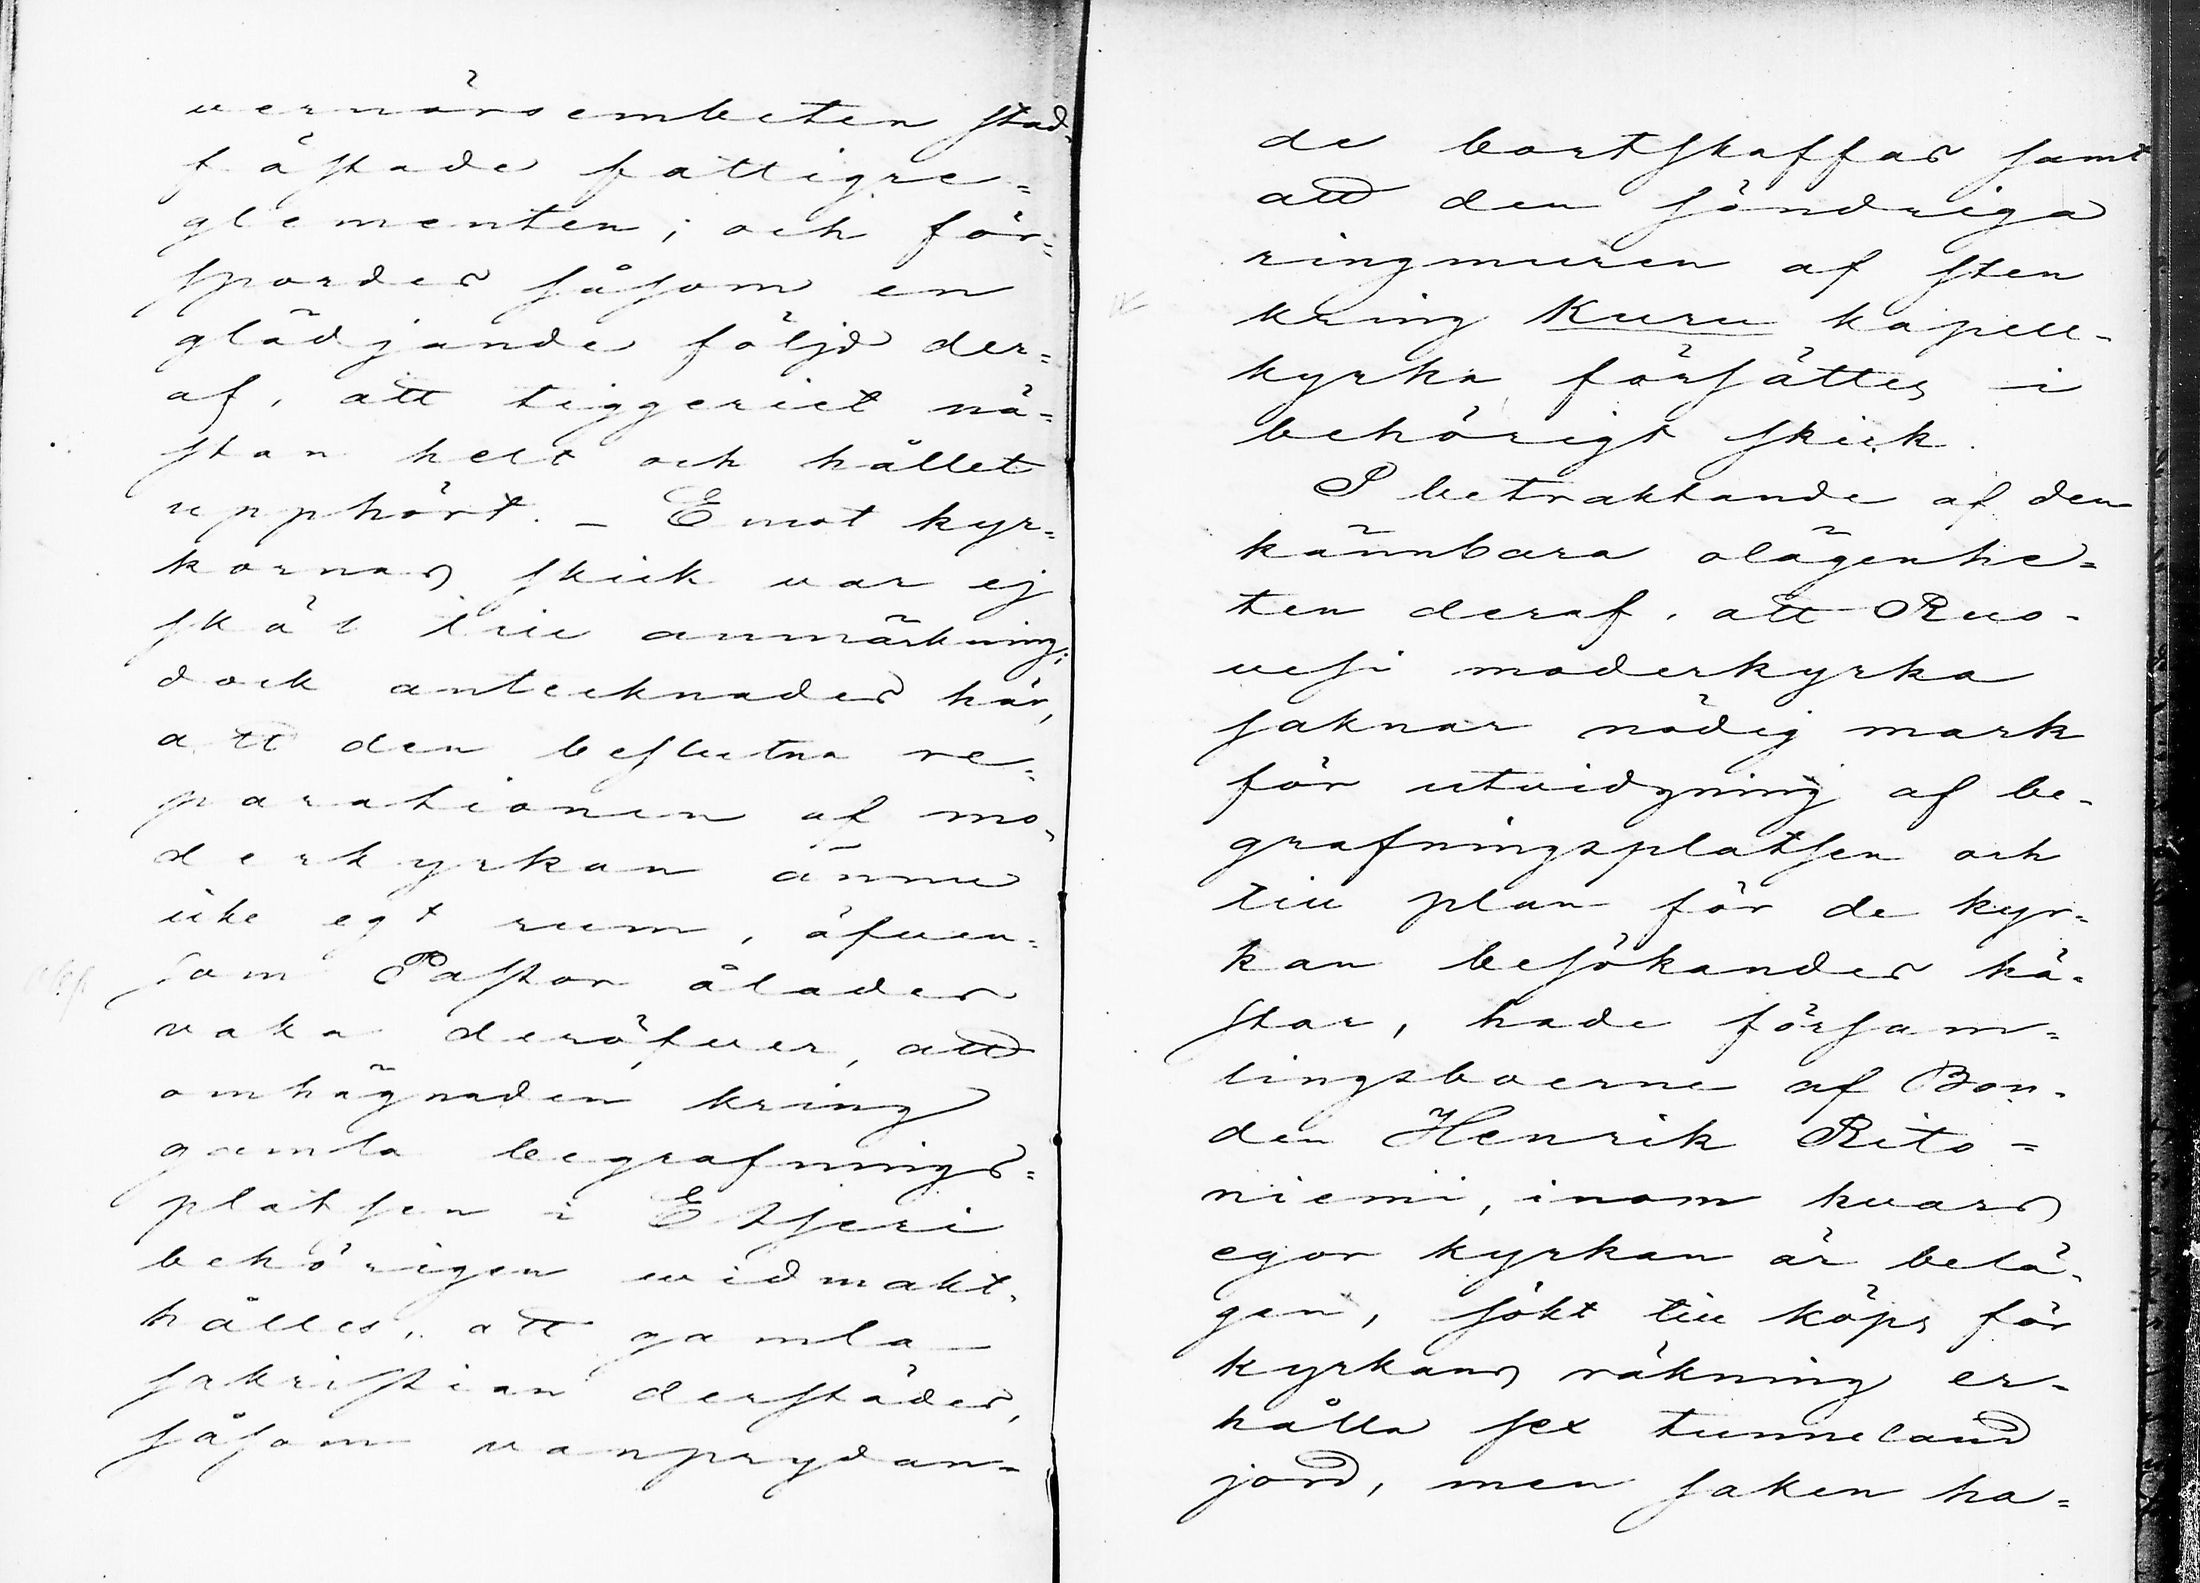 vernörsembeten stad-
fästade fattigre=
glementen; och för=
spordes såsom en
glädjande följd der=
af, att tiggeriet nä=
stan helt och hållet
upphört. – Emot kyr=
kornas skick var ej
skäl till anmärkning;
dock antecknades här,
att den beslutna re=
parationen af mo=
derkyrkan ännu
icke egt rum, äfven=
som Pastor ålades
vaka deröfver, att
omhägnaden kring
gamla begrafnings=
platsen i Etseri
behörigen vidmakt-
hålles, att gamla
sakristian derstädes,
såsom vanprydan=
de bortskaffas samt
att den söndriga
ringmuren af sten
kring Kuru kapell-
kyrka försättes i
behörigt skick.
I betraktande af den
kännbara olägenhe=
ten deraf, att Ruo-
vesi moderkyrka
saknar nödig mark
för utvidgning af be-
grafningsplatsen och
till plan för de kyr-
kan besökandes hä-
star, hade försam=
lingsboerne af Bon-
den Henrik Rito=
niemi, inom hvars
egor kyrkan är belä-
gen, sökt till köps för
kyrkans räkning er-
hålla sex tunneland
jord, men saken ha=